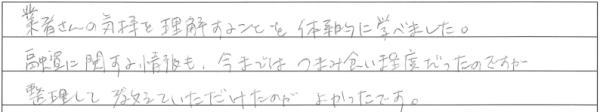 業者さんの気持を理解することを体験的に学べました。
融資に関する情報も、今まではつまみ食い程度だったのですが
整理して教えていただけたのがよかったです。